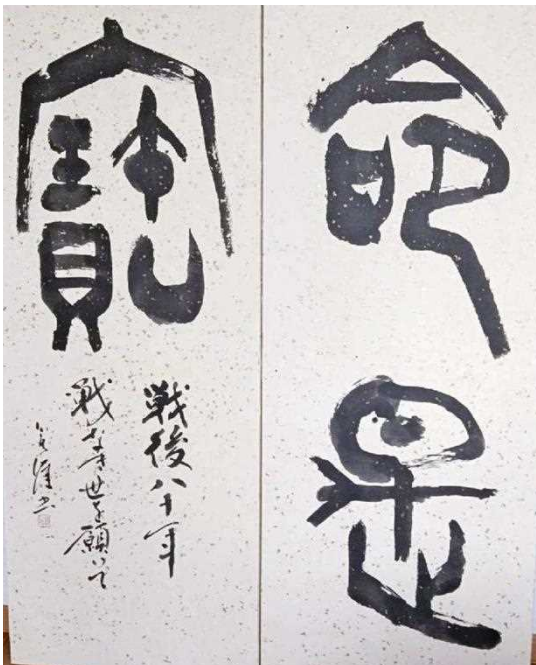 命是
寶
戦後八十年
戦なき世を願いて